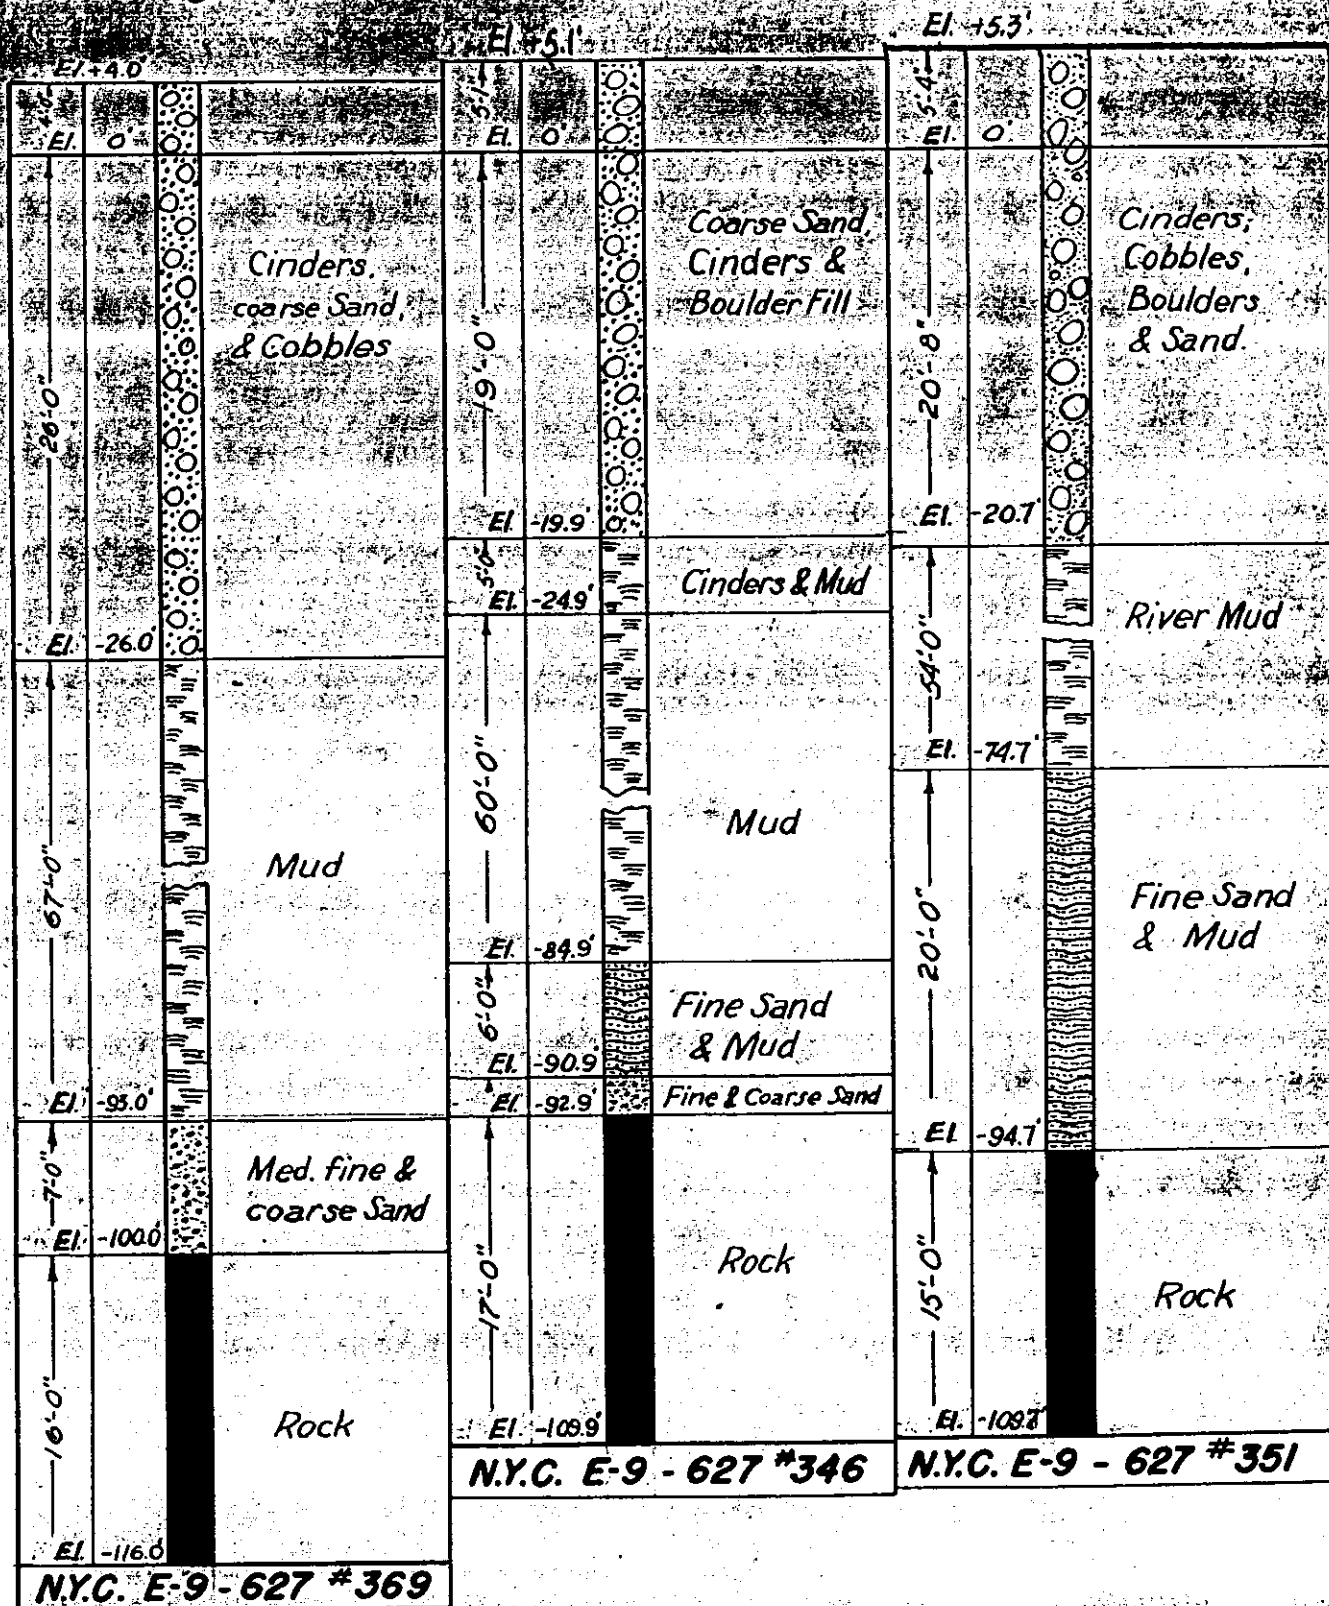 El. +4.0'
4'-0"
El. 0'
26'-0"
Cinders,
coarse Sand,
& Cobbles
El. -26.0'
67'-0"
Mud
El. -93.0'
7'-0"
Med. fine &
coarse Sand
El. -100.0'
16'-0"
Rock
El. -116.0'
N.Y.C. E-9 - 627 #369
El. +5.1'
5'-1"
El. 0'
19'-0"
Coarse Sand,
Cinders &
Boulder Fill
El. -19.9'
5'-0"
Cinders & Mud
El. -24.9'
60'-0"
Mud
El. -84.9'
6'-0"
Fine Sand
& Mud
El. -90.9'
Fine & Coarse Sand
El. -92.9'
17'-0"
Rock
El. -109.9'
N.Y.C. E-9 - 627 #346
El. +5.3'
5'-4"
El. 0'
20'-8"
Cinders,
Cobbles,
Boulders
& Sand.
El. -20.7'
54'-0"
River Mud
El. -74.7'
20'-0"
Fine Sand
& Mud
El. -94.7'
15'-0"
Rock
El.
N.Y.C. E-9 - 627 #351